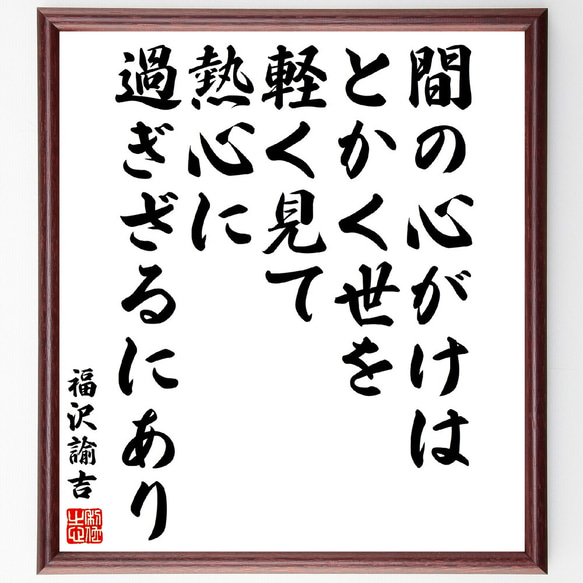 間の心がけは
とかく世を
軽く見て
熱心に
過ぎざるにあり
福沢諭吉